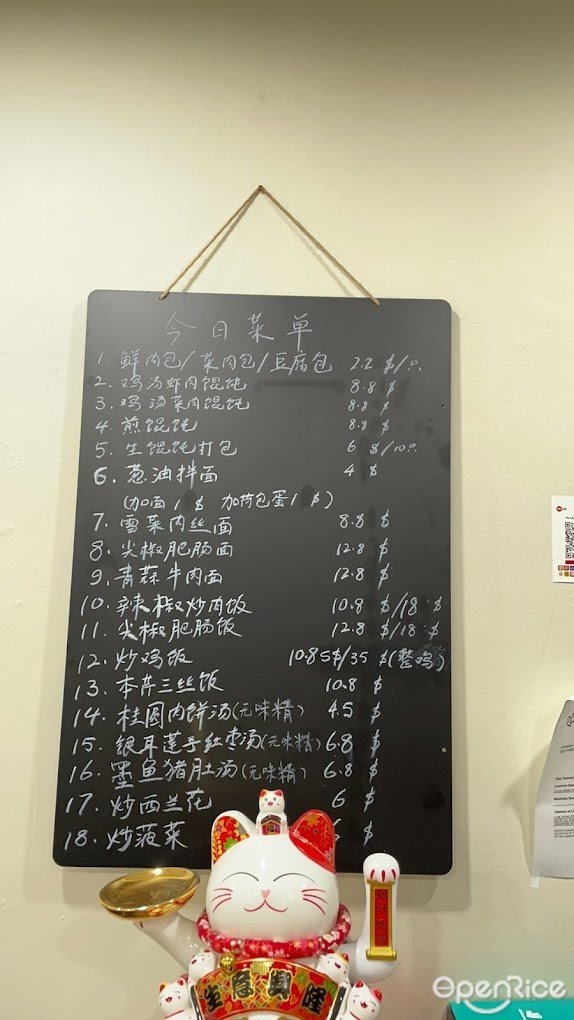 今日菜单
1. 鲜肉包/菜肉包/豆腐包 2.2 $/只
2. 鸡汤虾肉馄饨 8.8 $
3. 鸡汤菜肉馄饨 8.8 $
4. 煎馄饨 8.8 $
5. 生馄饨打包 6 $/10只
6. 葱油拌面 4 $
(加面1 $ 加荷包蛋1 $)
7. 雪菜肉丝面 8.8 $
8. 尖椒肥肠面 12.8 $
9. 青蒜牛肉面 12.8 $
10. 辣椒炒肉饭 10.8 $/18 $
11. 尖椒肥肠饭 12.8 $/18 $
12. 炒鸡饭 10.8$/35 $(整鸡)
13. 本芹三丝饭 10.8 $
14. 桂圆肉饼汤(无味精) 4.5 $
15. 银耳莲子红枣汤(无味精) 6.8 $
16. 墨鱼猪肚汤(无味精) 6.8 $
17. 炒西兰花 6 $
18. 炒菠菜 $
生意興隆
OpenRice